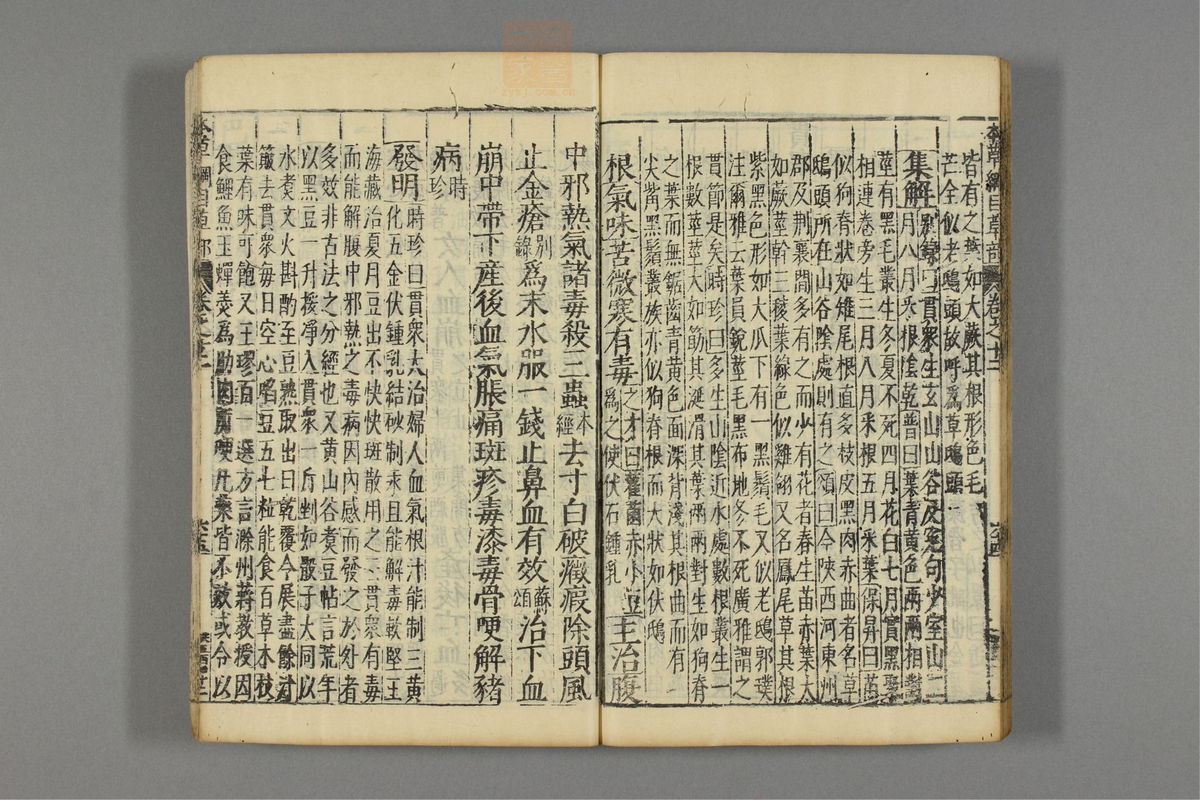 皆有之葉如大蕨其根形色毛
芒全似老鴟頭故呼爲草鴟頭
集解别錄曰貫衆生玄山山谷及冤句少室山二
月八月采根陰乾普曰葉青黄色兩兩相對
莖有黑毛叢生冬夏不死四月花白七月實黑聚
相連卷旁生三月八月采根五月采葉保昇曰苗
似狗脊狀如雉尾根直多枝皮黑肉赤曲者名草
鴟頭所在山谷陰處則有之頌曰今陜西河東州
郡及荆襄間多有之而少有花者春生苗赤葉大
如蕨莖幹三稜葉綠色似雞翎又名鳳尾草其根
紫黑色形如大瓜下有黑鬚毛又似老鴟郭璞
注爾雅云葉員銳莖毛黑布地冬不死廣雅謂之
貫節是矣時珍曰多生山陰近水處數根叢生一
根數莖莖大如筯其涎滑其葉兩兩對生如狗脊
之葉而無鋸齒青黄色面深背淺其根曲而有
尖觜黑鬚叢族亦似狗脊根而大狀如伏鴟
根氣味苦微寒有毒之才曰雚菌赤小豆爲之使伏石鍾乳主治腹
中邪熱氣諸毒殺三蟲本經去寸白破癥瘕除頭風
止金瘡别錄爲末水服一錢止鼻血有效蘇頌治下血
崩中帶下產後血氣脹痛斑疹毒漆毒骨哽解豬
病時珍
發明時珍曰貫衆大治婦人血氣根汁能制三黄
化五金伏鍾乳結砂制汞且能解毒軟堅王
海藏治夏月豆出不快快斑散用之云貫衆有毒
而能解腹中邪熱之毒病因内感而發之於外者
多效非古法之分經也又黄山谷煮豆帖言荒年
以黑豆一升挼淨入貫衆一斤剉如骰子大同以
水煮文火斟酌至豆熟取出日乾覆令展盡餘汁
簸去貫衆每日空心啗豆五七粒能食百草木枝
葉有味可飽又王璆百一選方言滁州蔣教授因
食鯉魚玉蟬羮爲肋肉所哽凡藥皆不效或令以
本草綱目草部
卷之十二